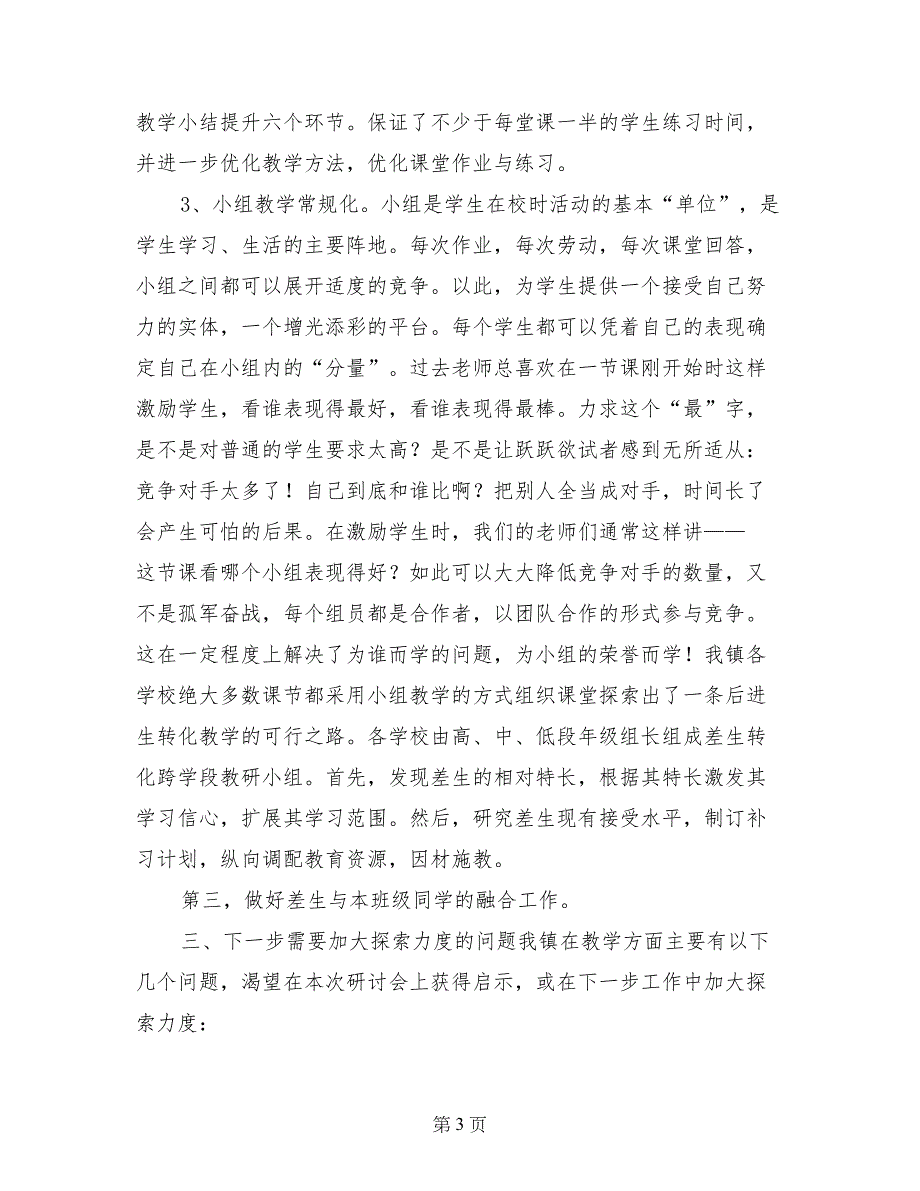 教学小结提升六个环节。保证了不少于每堂课一半的学生练习时间，
并进一步优化教学方法，优化课堂作业与练习。
3、小组教学常规化。小组是学生在校时活动的基本“单位”，是
学生学习、生活的主要阵地。每次作业，每次劳动，每次课堂回答，
小组之间都可以展开适度的竞争。以此，为学生提供一个接受自己努
力的实体，一个增光添彩的平台。每个学生都可以凭着自己的表现确
定自己在小组内的“分量”。过去老师总喜欢在一节课刚开始时这样
激励学生，看谁表现得最好，看谁表现得最棒。力求这个“最”字，
是不是对普通的学生要求太高？是不是让跃跃欲试者感到无所适从：
竞争对手太多了！自己到底和谁比啊？把别人全当成对手，时间长了
会产生可怕的后果。在激励学生时，我们的老师们通常这样讲——
这节课看哪个小组表现得好？如此可以大大降低竞争对手的数量，又
不是孤军奋战，每个组员都是合作者，以团队合作的形式参与竞争。
这在一定程度上解决了为谁而学的问题，为小组的荣誉而学！我镇各
学校绝大多数课节都采用小组教学的方式组织课堂探索出了一条后进
生转化教学的可行之路。各学校由高、中、低段年级组长组成差生转
化跨学段教研小组。首先，发现差生的相对特长，根据其特长激发其
学习信心，扩展其学习范围。然后，研究差生现有接受水平，制订补
习计划，纵向调配教育资源，因材施教。
第三，做好差生与本班级同学的融合工作。
三、下一步需要加大探索力度的问题我镇在教学方面主要有以下
几个问题，渴望在本次研讨会上获得启示，或在下一步工作中加大探
索力度：
第 3 页